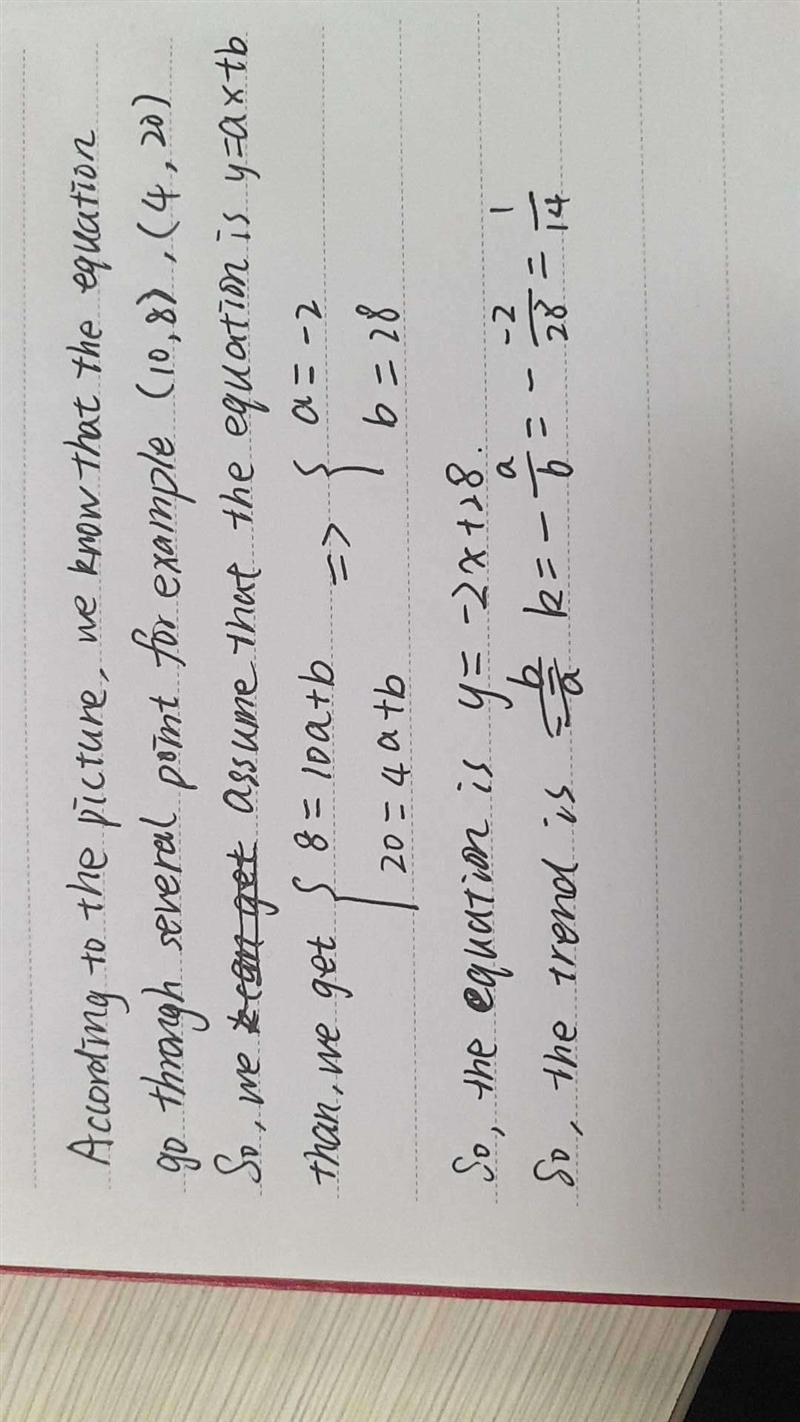 According to the picture, we know that the equation
go through several point for example (10,8), (4,20)
So, we can get assume that the equation is y=ax+b
than, we get { 8=10a+b => { a=-2
20=4a+b b=28
So, the equation is y=-2x+28.
So, the trend is = b/a k=-a/b=--2/28=1/14